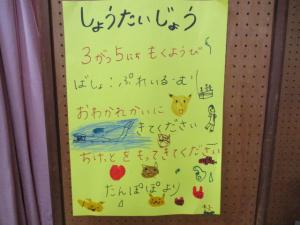 しょうたいじょう
3がつ5にち もくようび
ばしょ:ぷれいるーむ
おわかれかいに
きてください
ちけっとをもってきてください
たんぽぽより